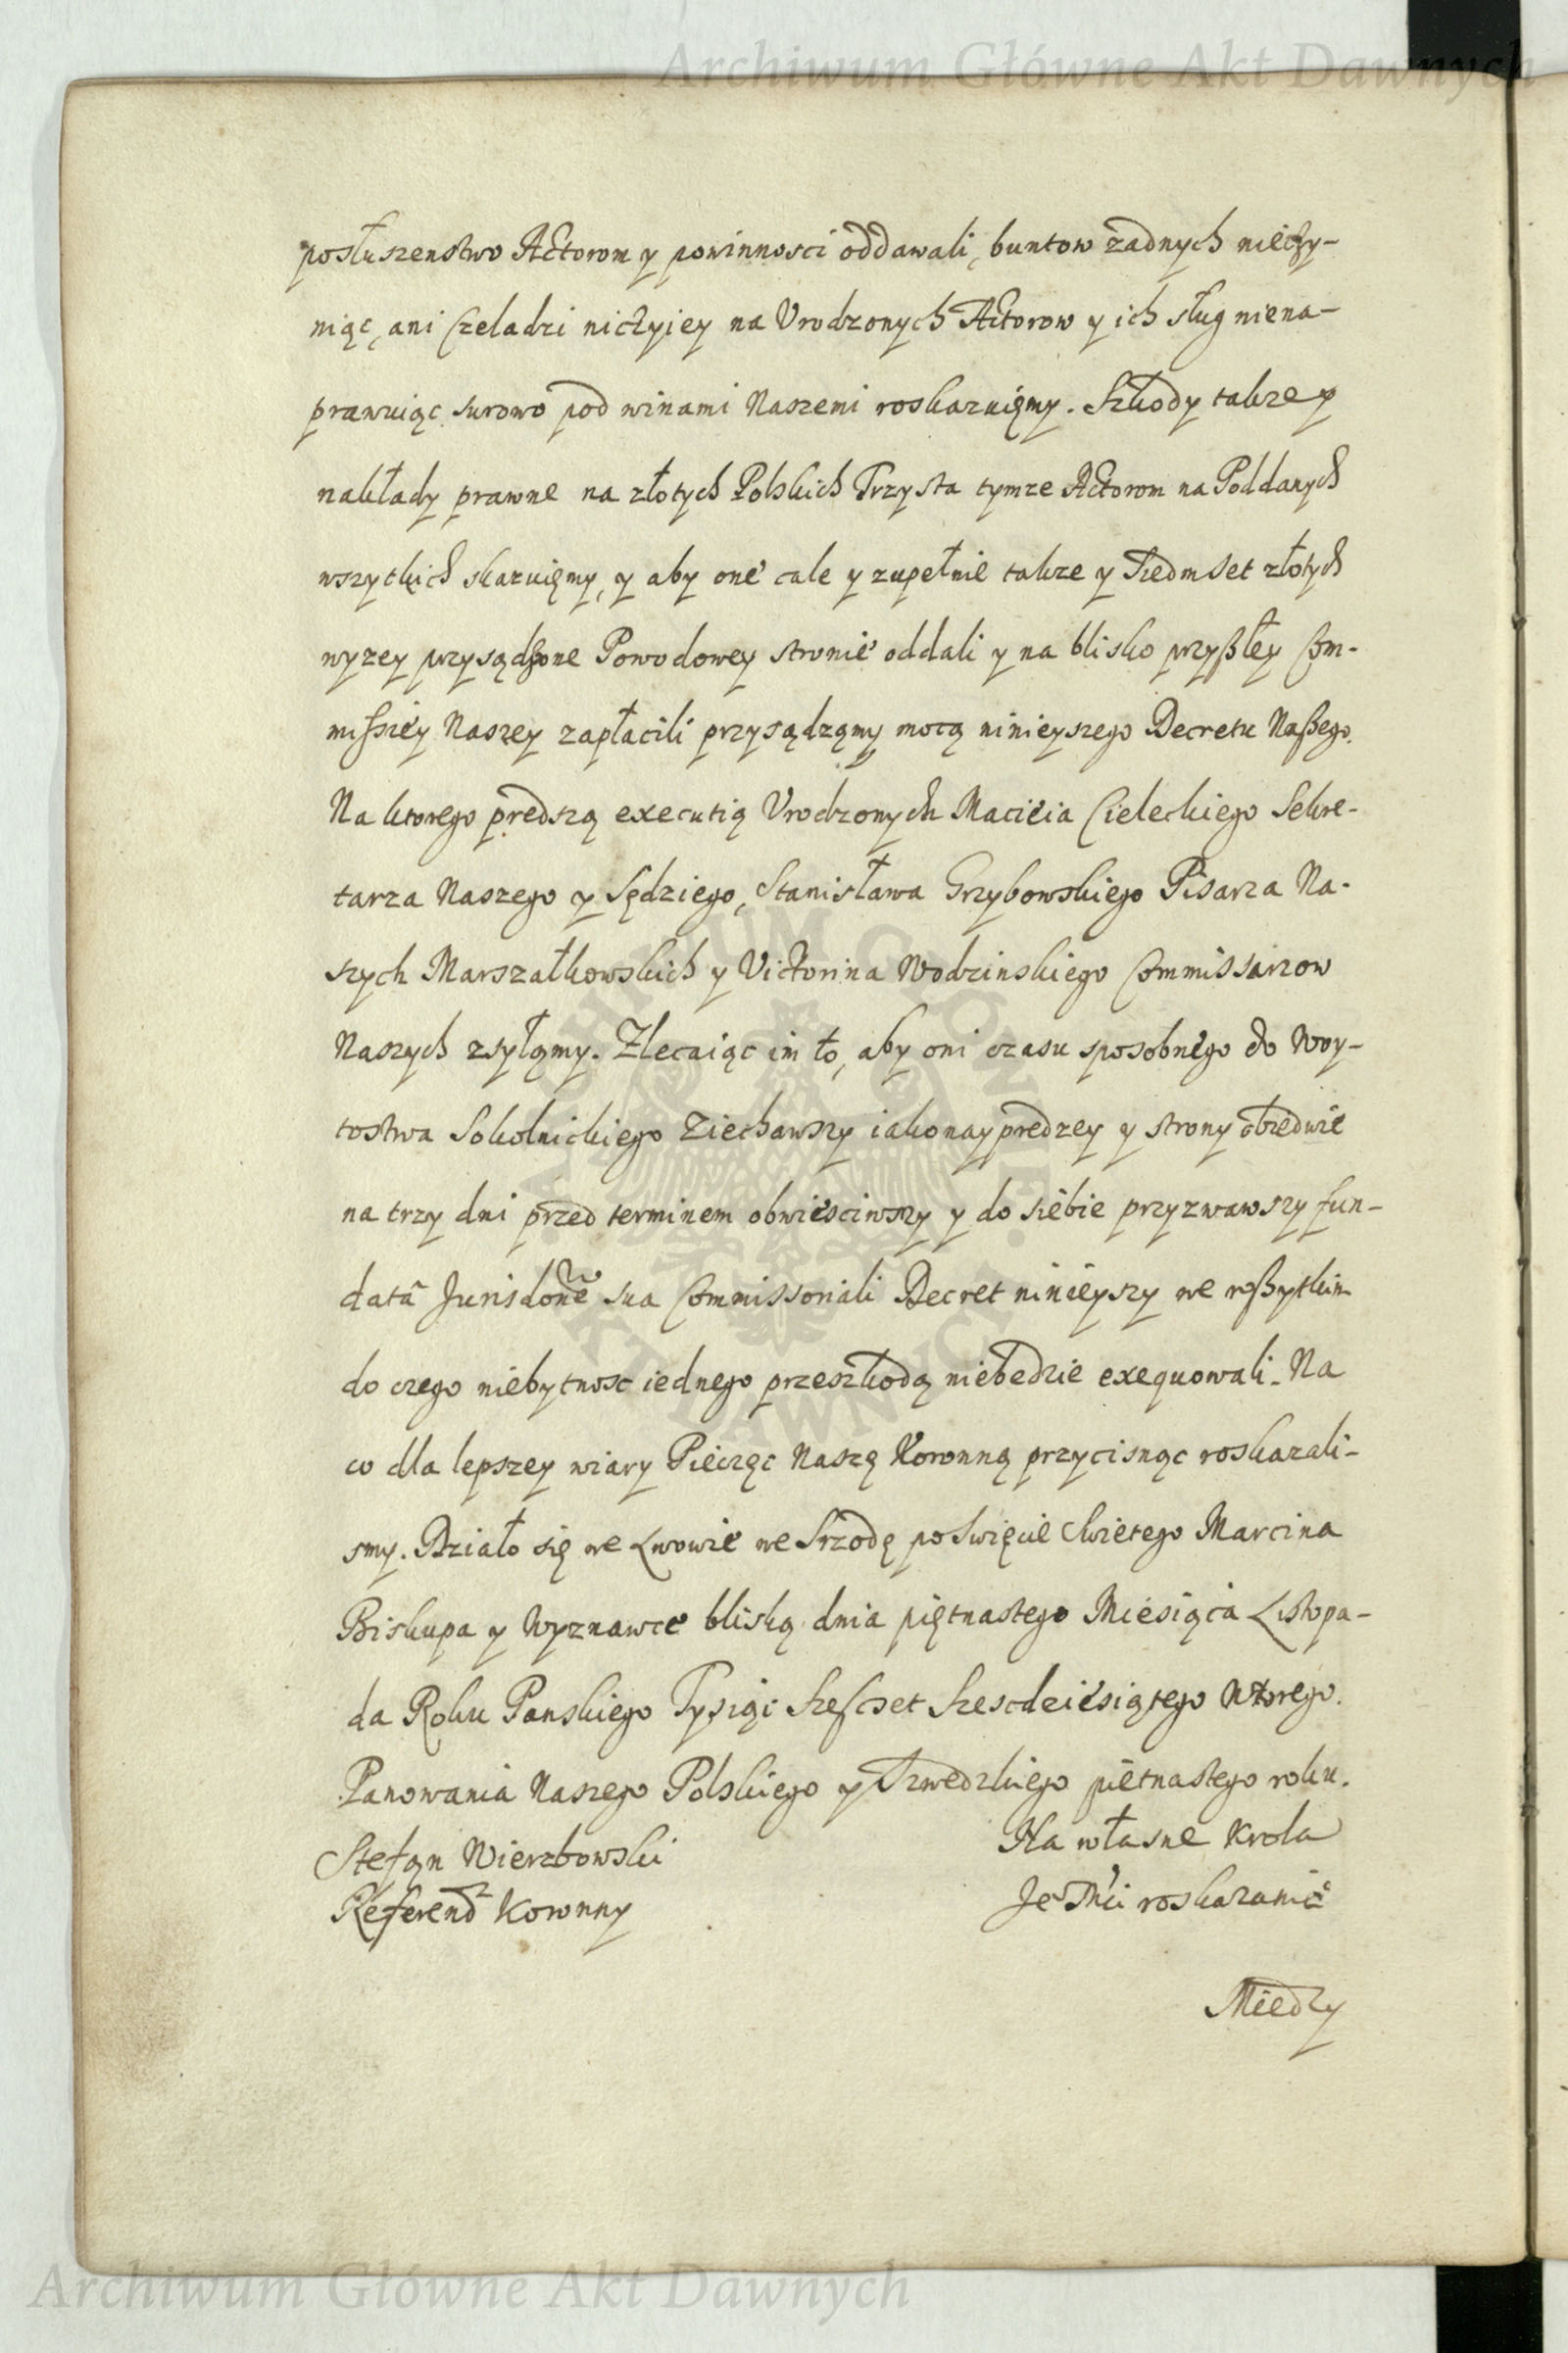 Archiwum Główne Akt Dawnych
posłuszenstwo Actorom y powinnosci oddawali, buntow żadnych nieczy-
niąc, ani Czeladzi niczyiey na Vrodzonych Actorow y ich sług niena-
prawuiąc surowo pod winami Naszemi roskazuięmy. Szkody takze y
nakłady prawne na złotych Polskich Trzysta tymze Actorom na Poddanych
wszytkich skazuięmy, y aby one cale y zupełnie takze y Siedmset złotych
wyzey przysądzone Powodowey stronie oddali y na blisko przyszłey Com-
missiey Naszey zapłacili przysądzamy mocą ninieyszego Decretu Naszego.
Na ktorego prędszą executią Vrodzonych Macieia Cieleckiego Sekre-
tarza Naszego y Sędziego, Stanisława Grzybowskiego Pisarza Na-
szych Marszałkowskich y Victorina Wodzinskiego Commissarzow
Naszych zsyłamy. Zlecaiąc im to, aby oni czasu sposobnego do Woy-
tostwa Sokolnickiego Ziechawszy iako nayprędzey y strony obiedwie
na trzy dni przed terminem obwiesciwszy y do siebie przyzwawszy fun-
datâ Jurisdone sua Commissoriali Decret ninieyszy we wszytkim
do czego niebytnosc iednego przeszkodą niebędzie exequowali. Na
co dla lepszey wiary Pieczęc Naszą Koronną przycisnąc roskazali-
smy. Działo się we Lwowie we Srzodę po Swięcie Swiętego Marcina
Biskupa y Wyznawce bliską dnia piętnastego Miesiąca Listopa-
da Roku Panskiego Tysiąc Szescset Szescdziesiątego Wtorego.
Panowania Naszego Polskiego y Szwedzkiego piętnastego roku.
Stefan Wierzbowski
Referend Koronny
Na własne Krola
Je Mci roskazanie
Miedzy
Archiwum Główne Akt Dawnych